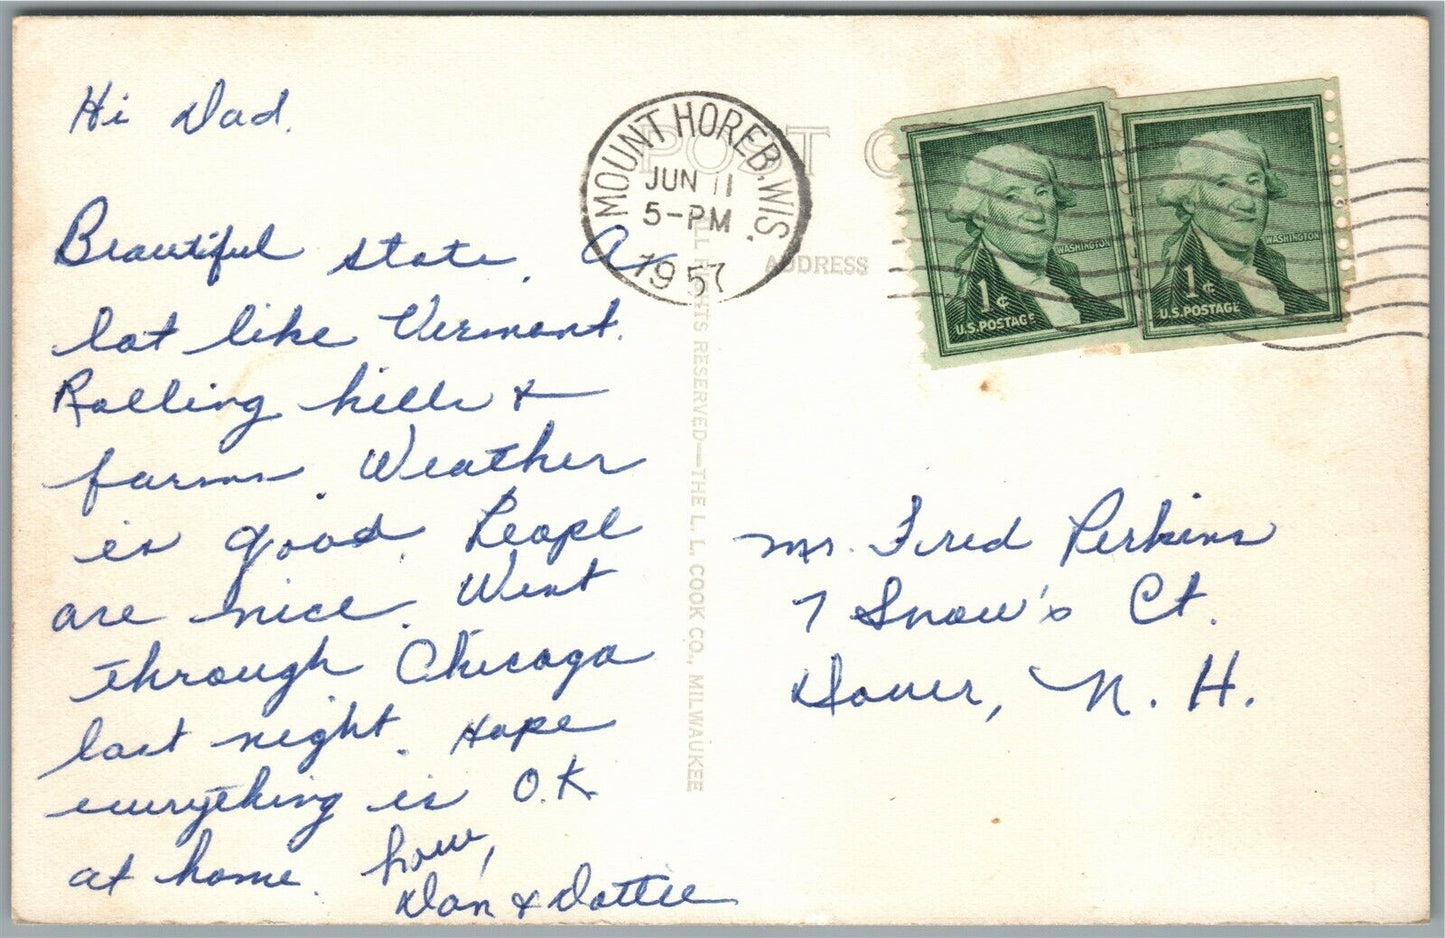 Hi Dad.
Beautiful state. A
lot like Vermont.
Rolling hills &
farms. Weather
is good. People
are nice. Went
through Chicago
last night. Hope
everything is O.K
at home. Love,
Don & Dottie
POST C
ADDRESS
MOUNT HOREB, WIS.
JUN 11
5-PM
1957
WASHINGTON
1¢
U.S. POSTAGE
WASHINGTON
1¢
U.S. POSTAGE
ALL RIGHTS RESERVED—THE L. L. COOK CO., MILWAUKEE
Mr. Fred Perkins
7 Snow's Ct.
Dover, N. H.